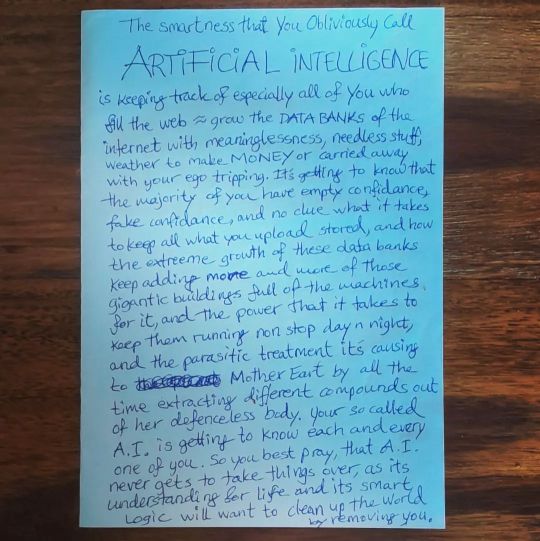 The smartness that You Obliviously Call
ARTIFICIAL INTELLIGENCE
is keeping track of especially all of you who
fill the web ≈ grow the DATA BANKS of the
internet with meaninglessness, needless stuff,
weather to make MONEY or carried away
with your ego tripping. It's getting to know that
the majority of you have empty confidance,
fake confidance, and no clue what it takes
to keep all what you upload stored, and how
the extreeme growth of these data banks
keep adding more and more of those
gigantic buildings full of the machines
for it, and the power that it takes to
keep them running non stop day n night,
and the parasitic treatment it's causing
to Mother Eart by all the
time extracting different compounds out
of her defenceless body. Your so called
A.I. is getting to know each and every
one of you. So you best pray, that A.I.
never gets to take things over, as its
understanding for life and its smart
Logic will want to clean up the world
by removing you.